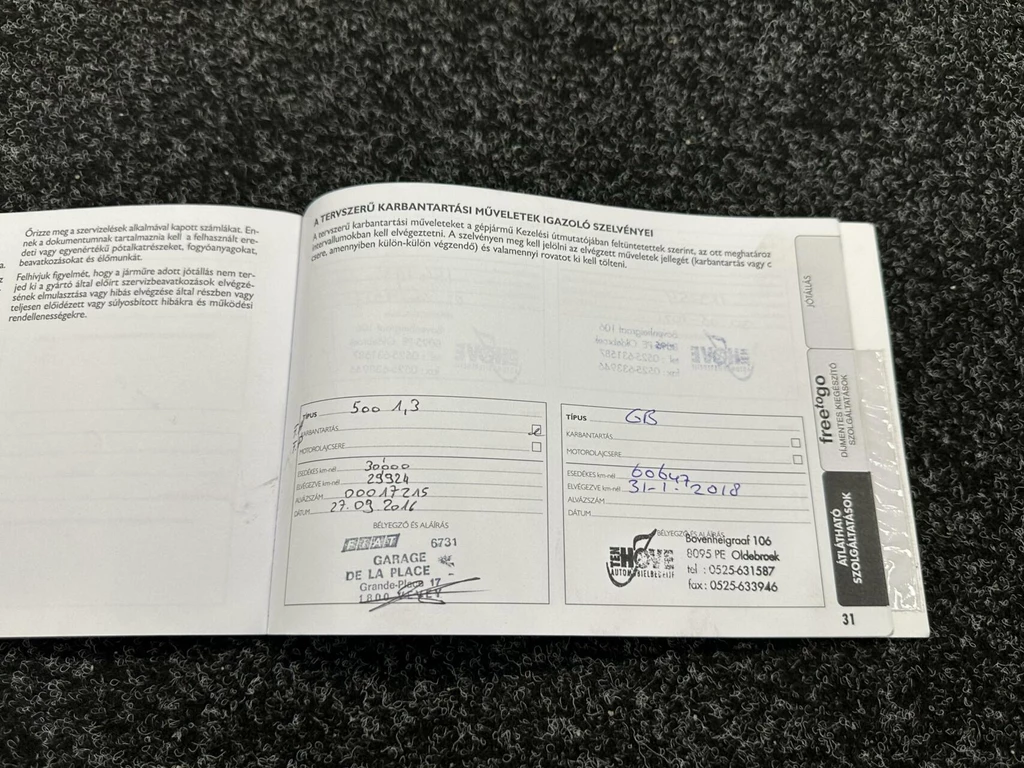 Őrizze meg a szervizelések alkalmával kapott számlákat. En-
nek a dokumentumnak tartalmaznia kell a felhasznált ere-
deti vagy egyenértékű pótalkatrészeket, fogyóanyagokat,
beavatkozásokat és élőmunkát.
Felhívjuk figyelmét, hogy a járműre adott jótállás nem ter-
jed ki a gyártó által előírt szervizbeavatkozások elvégzé-
sének elmulasztása vagy hibás elvégzése által részben vagy
teljesen előidézett vagy súlyosbított hibákra és működési
rendellenességekre.
A TERVSZERŰ KARBANTARTÁSI MŰVELETEK IGAZOLÓ SZELVÉNYEI
A tervszerű karbantartási műveleteket a gépjármű Kezelési útmutatójában feltüntetettek szerint, az ott meghatároz
intervallumokban kell elvégeztetni. A szelvényen meg kell jelölni az elvégzett műveletek jellegét (karbantartás vagy c
csere, amennyiben külön-külön végzendő) és valamennyi rovatot ki kell tölteni.
TÍPUS 500 1,3
KARBANTARTÁS
MOTOROLAJCSERE
ESEDÉKES km-nél 30000
ELVÉGEZVE km-nél 29924
ALVÁZSZÁM 00017215
DÁTUM 27.09.2016
BÉLYEGZŐ ÉS ALÁÍRÁS
FIAT 6731
GARAGE
DE LA PLACE
Grande-Place 17
1800 VEVEY
TÍPUS GB
KARBANTARTÁS
MOTOROLAJCSERE
ESEDÉKES km-nél 60647
ELVÉGEZVE km-nél 31-1-2018
ALVÁZSZÁM
DÁTUM
BÉLYEGZŐ ÉS ALÁÍRÁS
TEN HOVE
AUTOMOBIELBEDRIJF
Bovenheigraaf 106
8095 PE Oldebroek
tel : 0525-631587
fax : 0525-633946
JÓTÁLLÁS
freetogo
DÍJMENTES KIEGÉSZÍTŐ
SZOLGÁLTATÁSOK
ÁTLÁTHATÓ
SZOLGÁLTATÁSOK
31